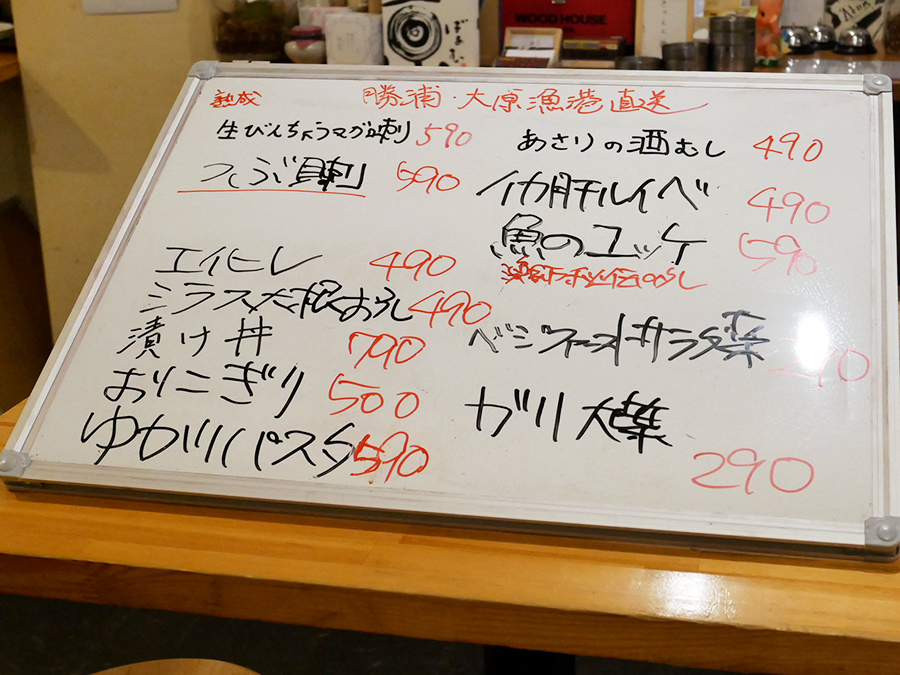 WOOD HOUSE
熟成 勝浦・大原漁港直送
生びんちょうマグロ刺 590
つぶ貝刺 590
エイヒレ 490
シラス大根おろし 490
漬け丼 790
おりこぎり 500
ゆかりパスタ 590
あさりの酒むし 490
イカ肝ルイベ 490
魚のユッケ 590
ベジファーストサラダ菜
ガリ大葉
290